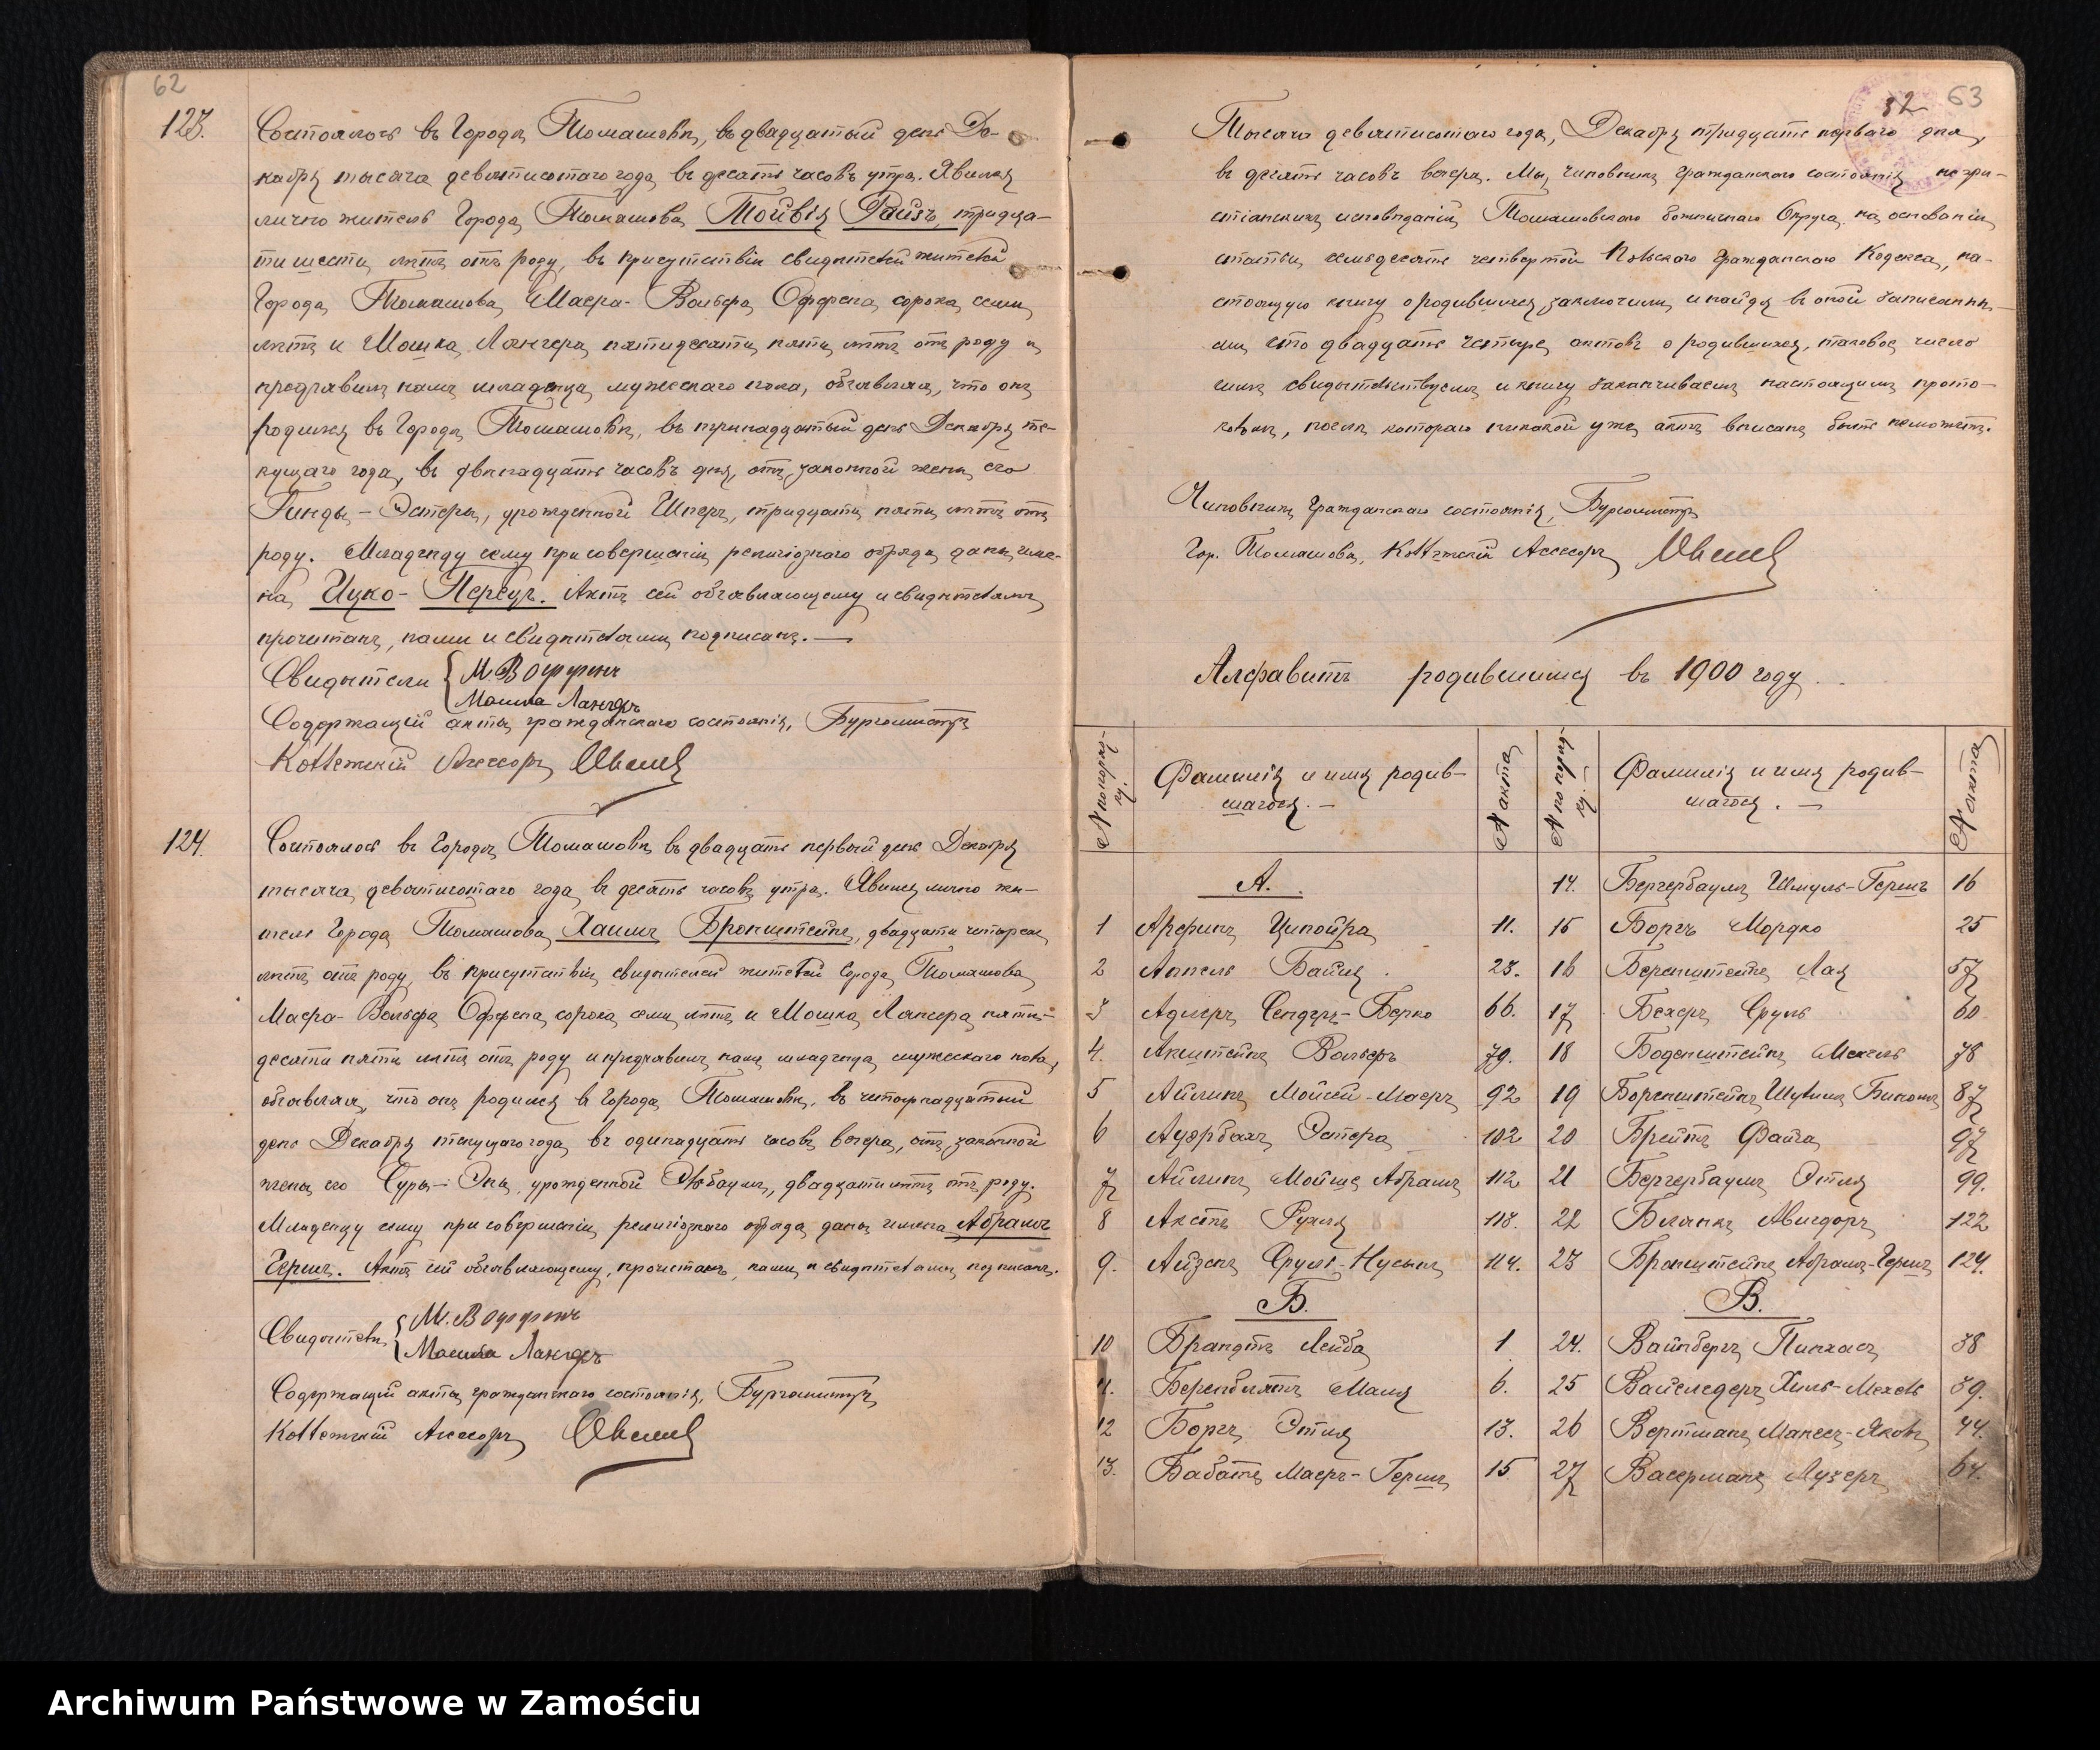 62
123.
Состоялось въ Городѣ Томашовѣ, въ двадцатый день Де-
кабря тысяча девятисотаго года въ десять часовъ утра. Явился
лично житель Города Томашова Мойвія Райзъ, тридца-
ти шести лѣтъ отъ роду, въ присутствіи свидѣтелей жителей
Города Томашова Маера-Вольфа Оффена, сорока семи
лѣтъ и Мошка Лангера, пятидесяти пяти лѣтъ отъ роду и
предъявилъ намъ младенца мужескаго пола, объявляя, что онъ
родился въ Городѣ Томашовѣ, въ тринадцатый день Декабря те-
кущаго года, въ двѣнадцать часовъ дня, отъ законной жены его
Гинды-Эстеры, урожденной Шнеръ, тридцати пяти лѣтъ отъ
роду. Младенцу сему при совершеніи религіознаго обряда даны име-
на Ицко- Актъ сей объявляющему и свидѣтелямъ
прочитанъ, нами и свидѣтелями подписанъ.—
Свидѣтели { М. В Оффенъ
Мошка Лангеръ
Содержащій акты гражданскаго состоянія, Бургомистръ
Коллежскій Ассесоръ
124.
Состоялось въ Городѣ Томашовѣ въ двадцать первый день Декабря
тысяча девятисотаго года въ десять часовъ утра. Явился лично жи-
тель Города Томашова Хаимъ Бронштейнъ, двадцати четырехъ
лѣтъ отъ роду, въ присутствіи свидѣтелей жителей Города Томашова
Маера-Вольфа Оффена сорока семи лѣтъ и Мошка Лангера пяти-
десяти пяти лѣтъ отъ роду и предъявилъ намъ младенца мужескаго пола,
объявляя, что онъ родился въ Городѣ Томашовѣ, въ четырнадцатый
день Декабря текущаго года, въ одинадцать часовъ вечера, отъ законной
жены его Суры- урожденной двадцати лѣтъ отъ роду.
Младенцу сему при совершеніи религіознаго обряда даны имена Абрамъ
Гершъ. Актъ сей объявляющему, прочитанъ, нами и свидѣтелями подписанъ.
Свидѣтели { М. В Оффенъ
Мошка Лангеръ
Содержащій акты гражданскаго состоянія, Бургомистръ
Коллежскій Ассесоръ
32 63
Тысяча девятисотаго года, Декабря тридцать перваго дня,
въ десять часовъ вечера. Мы, Чиновникъ Гражданскаго состоянія нехри-
стіанскихъ исповѣданій Томашовскаго Божничнаго Округа на основаніи
статьи семьдесятъ четвертой Польскаго Гражданскаго Кодекса, на-
стоящую книгу о родившихся, заключили, и найдя въ оной записанны-
ми сто двадцать четыре актовъ о родившихся, таковое число
симъ свидѣтельствуемъ и книгу заканчиваемъ настоящимъ прото-
коломъ, послѣ котораго никакой уже актъ вписанъ быть неможетъ.
Чиновникъ Гражданскаго состоянія, Бургомистръ
Гор. Томашова, Коллежскій Ассесоръ
Алфавитъ родившимся въ 1900 году
№ по поряд-ку. Фамилія и имя родив-шагося.— № акта № по поряд-ку.— Фамилія и имя родив-шагося.— № акта
А. 14. Бергербаумъ Шмуль-Гершъ 16
1 Арфинъ Ципойра 11. 15 Боргъ Мордко 25
2 Аппель Байля 23. 16 Беренштейнъ Лая 57
3 Адлеръ Сендеръ-Берко 66. 17 Бехеръ Сруль 60
4. Акштейнъ Вольфъ 79. 18 Боденштейнъ Мехель 78
5 Айлинъ Мойсей-Маеръ 92 19 Боренштейнъ 87
6 Ауэрбахъ Эстера 102 20 Брейтъ Файга 97
7 Айлинъ Мойше Абрамъ 112 21 Бергербаумъ Этля 99.
8 Акстъ Рухля 113. 22 Бланкъ Авигдоръ 122
9. Айзенъ Сруль-Нусынъ 114. 23 Бронштейнъ Абрамъ-Гершъ 124.
Б. В.
10 Брандтъ Лейба 1 24. Вайнбергъ Пинхасъ 38
11. Беренблятъ Маля 6. 25 Вайследеръ Хиль-Мехель 39.
12 Боргъ Этля 13. 26 Вертманъ Манесъ-Яковъ 44.
13. Бабатъ Маеръ-Гершъ 15 27 Васерманъ Лузеръ 64.
Archiwum Państwowe w Zamościu